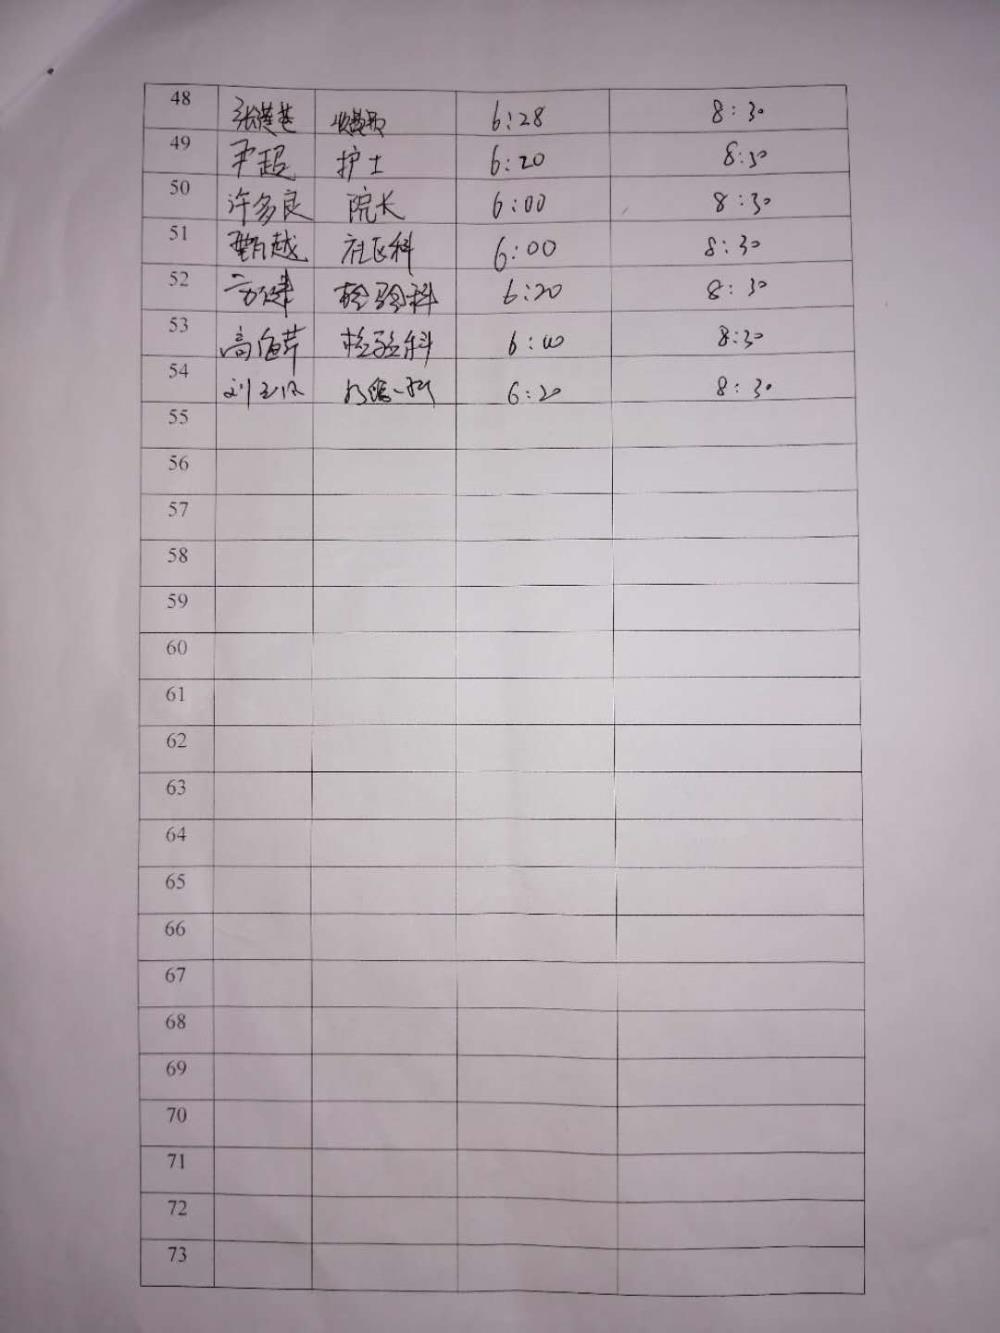 48 6:28 8:30
49 尹超 护士 6:20 8:30
50 许多良 院长 6:00 8:30
51 甄越 社区科 6:00 8:30
52 检验科 6:20 8:30
53 检验科 6:00 8:30
54 6:20 8:30
55
56
57
58
59
60
61
62
63
64
65
66
67
68
69
70
71
72
73